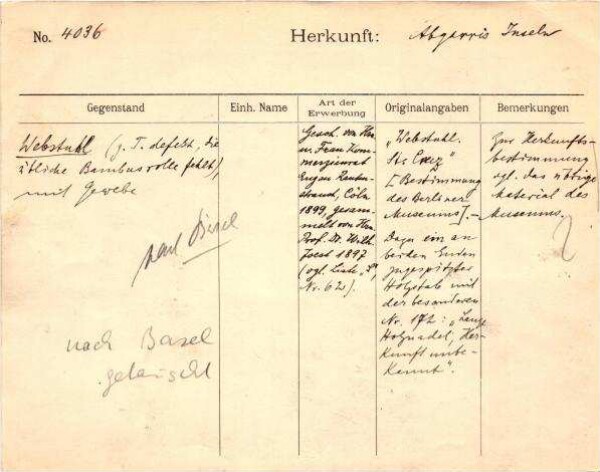 No. 4036
Herkunft: Abgarris Inseln
Gegenstand
Einh. Name
Art der Erwerbung
Originalangaben
Bemerkungen
Webstuhl (z. T. defekt, die
übliche Bambusrolle fehlt)
mit Gewebe
nach Basel
nach Basel
getauscht
Gesch. von Hrn.
u. Frau Kom-
merzienrat
Eugen Rauten-
strauch, Cöln
1899, gesam-
melt von Hrn.
Prof. Dr. Wilh.
Joest 1897
(vgl. Liste
Nr. 62).
„Webstuhl.
Sta Cruz"
[Bestimmung
des Berliner
Museums].—
Dazu ein an
beiden Enden
zugespitzter
Holzstab mit
der besonderen
Nr. 172: „Lange
Holznadel, Her-
kunft unbe-
kannt".
Zur Herkunfts-
bestimmung
vgl. das übrige
Material des
Museums.